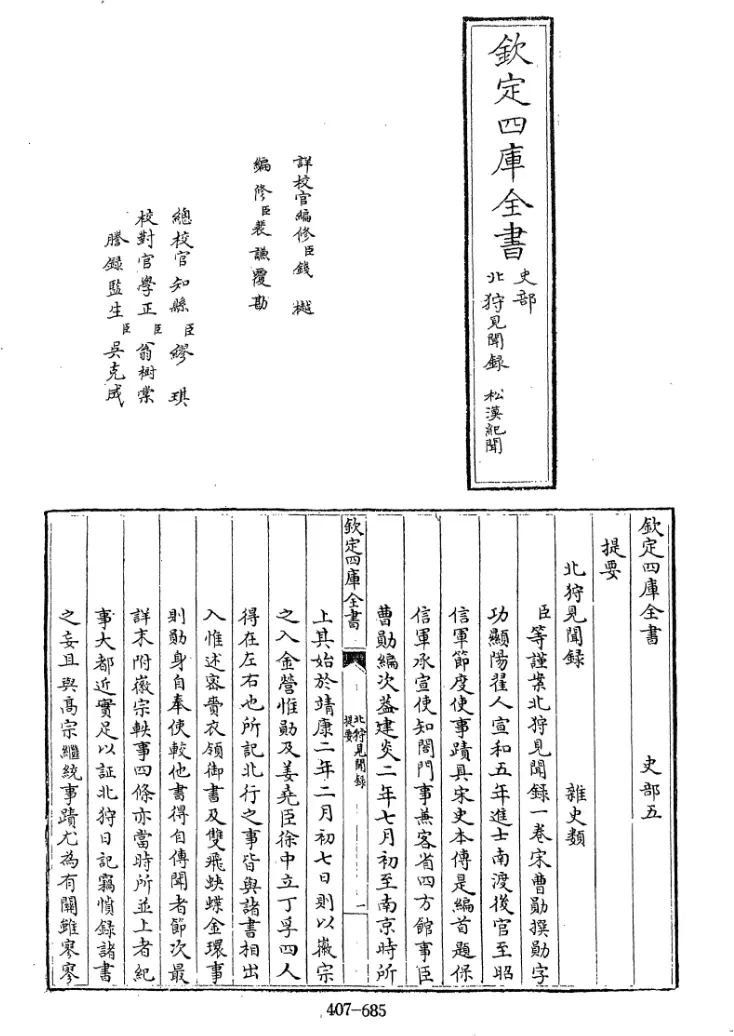 欽定四庫全書
史部
北狩見聞錄 松漠紀聞
詳校官編修臣錢樾
編修臣裴謙覆勘
總校官知縣臣繆琪
校對官學正臣翁樹棠
謄錄監生臣吳克成
欽定四庫全書 史部五
提要
北狩見聞録 雜史類
臣等謹案北狩見聞録一卷宋曹勛撰勛字
功顯陽翟人宣和五年進士南渡後官至昭
信軍節度使事蹟具宋史本傳是編首題保
信軍承宣使知閤門事兼客省四方館事臣
曹勛編次葢建炎二年七月初至南京時所
欽定四庫全書
北狩見聞録
提要
一
上其始於靖康二年二月初七日則以徽宗
之入金營惟勛及姜堯臣徐中立丁孚四人
得在左右也所記北行之事皆與諸書相出
入惟述密賫衣領御書及雙飛蛺蝶金環事
則勛身自奉使較他書得自傳聞者節次最
詳末附徽宗軼事四條亦當時所並上者紀
事大都近實足以証北狩日記竊憤錄諸書
之妄且與髙宗繼統事蹟尤為有闗雖寥寥
407-685